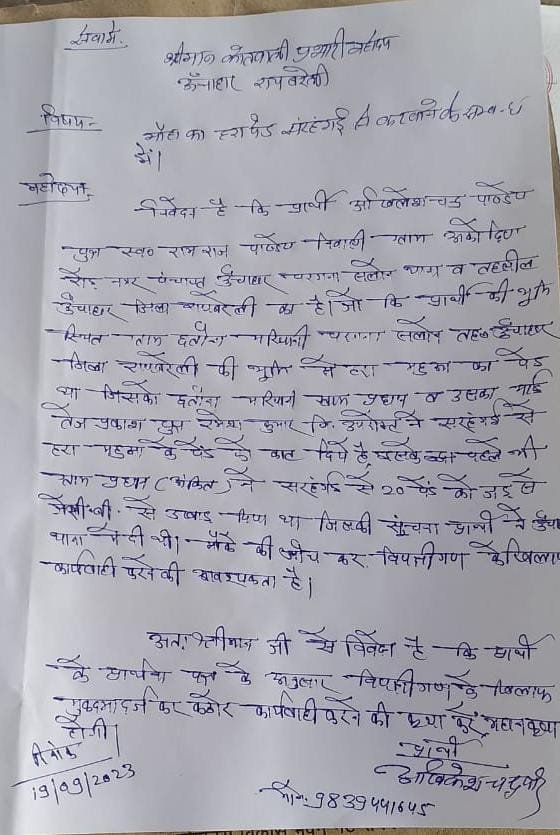 सेवामें,
श्रीमान कोतवाली प्रभारी महोदय
ऊँचाहार रायबरेली
विषय- मौहा का हरा पेड़ सरहंगई से कटवाने के सम्बन्ध
में।
महोदय,
निवेदन है कि प्रार्थी अखिलेश चन्द्र पाण्डेय
पुत्र स्व० राम राज पाण्डेय निवासी ग्राम
रोड नगर पंचायत ऊँचाहार परगना सलोन थाना व तहसील
ऊँचाहार जिला रायबरेली का है। जो कि प्रार्थी की भूमि
स्थित ग्राम परगना सलोन तह० ऊँचाहार
जिला रायबरेली की भूमि में हरा महुआ का पेड़
था जिसको ग्राम प्रधान व उसका भाई
तेज प्रकाश पुत्र रमेश कुमार नि. उपरोक्त ने सरहंगई से
हरा महुआ के पेड़ को काट दिये है, इसके पहले भी
ग्राम प्रधान (अंकित) ने सरहंगई से 20 पेड़ को जड़ से
जेसीबी. से उखाड़ दिया था जिसकी सूचना प्रार्थी ने
थाना में दी थी। मौके की जाँच कर विपक्षीगण के खिलाफ
कार्यवाही करने की आवश्यकता है।
अतः श्रीमान जी से निवेदन है कि प्रार्थी
के प्रार्थना पत्र के अनुसार विपक्षीगण के खिलाफ
मुकदमा दर्ज कर कठोर कार्यवाही करने की कृपा करें, महान कृपा
होगी।
दिनांक
19/09/2023
प्रार्थी
मो०: 9839441645